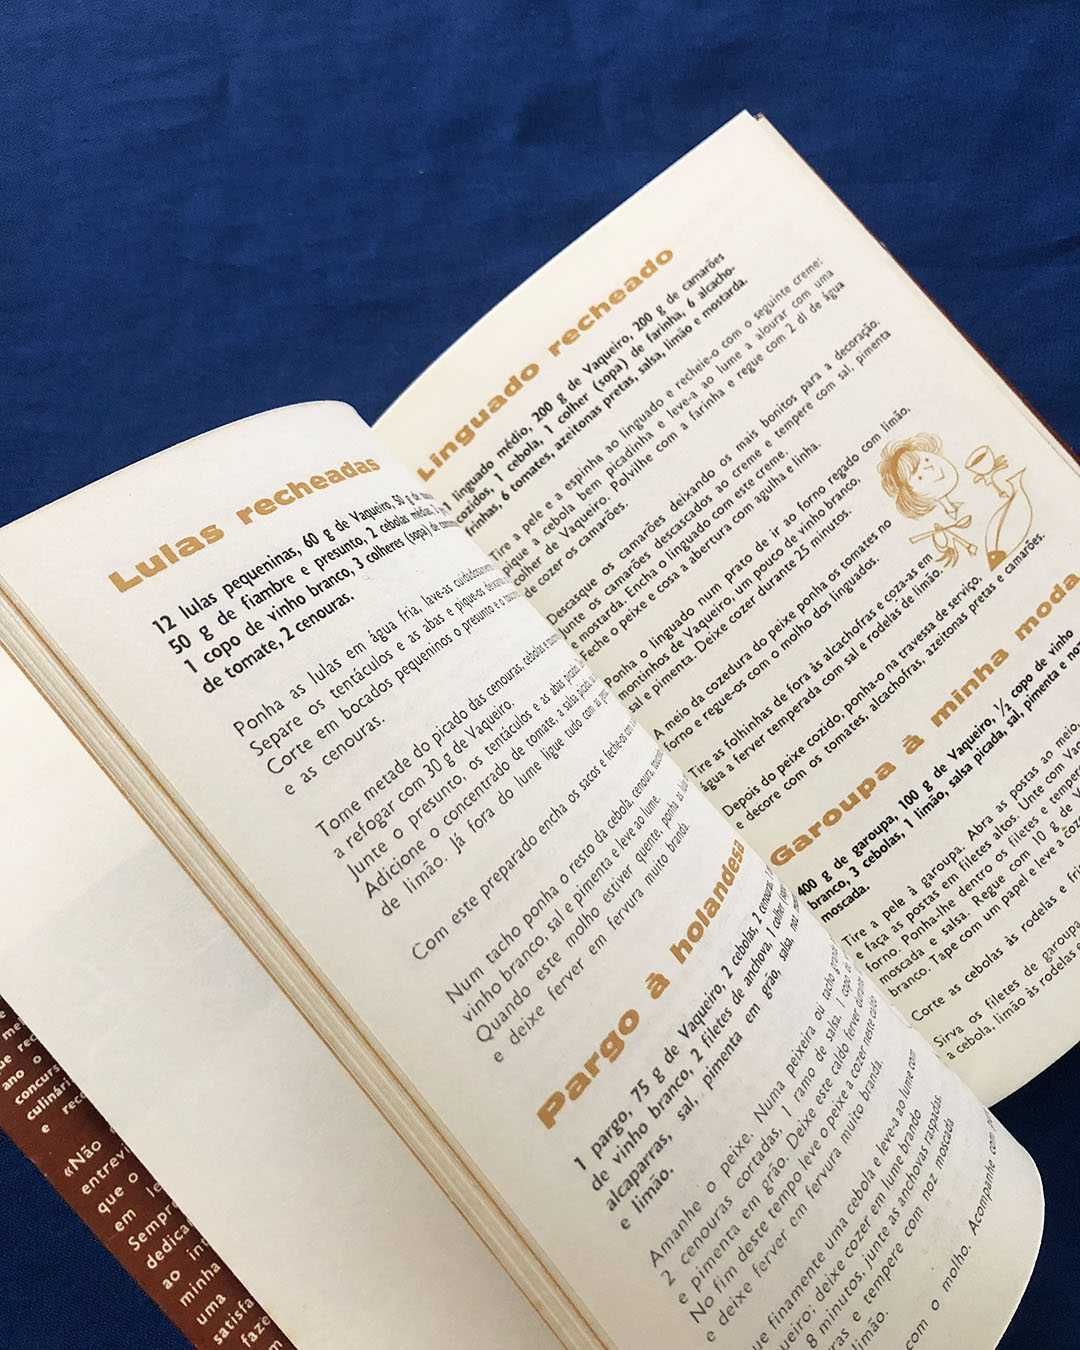 Lulas recheadas
12 lulas pequeninas, 60 g de Vaqueiro, 50 g de
50 g de fiambre e presunto, 2 cebolas médias,
1 copo de vinho branco, 3 colheres (sopa) de
de tomate, 2 cenouras.
Ponha as lulas em água fria, lave-as cuidadosamente
Separe os tentáculos e as abas e pique-os
Corte em bocados pequeninos o presunto e o
e as cenouras.
Tome metade do picado das cenouras, cebolas e
a refogar com 30 g de Vaqueiro.
Junte o presunto, os tentáculos e as abas
Adicione o concentrado de tomate, a salsa picada
de limão. Já fora do lume ligue tudo com as
Com este preparado encha os sacos e feche-os com
Num tacho ponha o resto da cebola, cenoura,
vinho branco, sal e pimenta e leve ao lume
Quando este molho estiver quente, ponha as lulas
e deixe ferver em fervura muito branda.
Pargo à holandesa
1 pargo, 75 g de Vaqueiro, 2 cebolas, 2 cenouras,
de vinho branco, 2 filetes de anchova, 1 colher
alcaparras, sal, pimenta em grão, salsa, noz
e limão.
Amanhe o peixe. Numa peixeira ou tacho grande
2 cenouras cortadas, 1 ramo de salsa, 1 copo de
e pimenta em grão. Deixe este caldo ferver durante
No fim deste tempo leve o peixe a cozer neste caldo
e deixe ferver em fervura muito branda.
que finamente uma cebola e leve-a ao lume com
queiro; deixe cozer em lume brando
8 minutos, junte as anchovas raspadas,
ras e tempere com noz moscada
limão.
com o molho. Acompanhe com
Linguado recheado
linguado médio, 200 g de Vaqueiro, 200 g de camarões
cozidos, 1 cebola, 1 colher (sopa) de farinha, 6 alcacho-
frinhas, 6 tomates, azeitonas pretas, salsa, limão e mostarda.
Tire a pele e a espinha ao linguado e recheie-o com o seguinte creme:
pique a cebola bem picadinha e leve-a ao lume a alourar com uma
colher de Vaqueiro. Polvilhe com a farinha e regue com 2 dl de água
de cozer os camarões.
Descasque os camarões deixando os mais bonitos para a decoração.
Junte os camarões descascados ao creme e tempere com sal, pimenta
e mostarda. Encha o linguado com este creme.
Feche o peixe e cosa a abertura com agulha e linha.
Ponha o linguado num prato de ir ao forno regado com limão,
montinhos de Vaqueiro, um pouco de vinho branco,
sal e pimenta. Deixe cozer durante 25 minutos.
A meio da cozedura do peixe ponha os tomates no
forno e regue-os com o molho dos linguados.
Tire as folhinhas de fora às alcachofras e coza-as em
água a ferver temperada com sal e rodelas de limão.
Depois do peixe cozido, ponha-o na travessa de serviço,
e decore com os tomates, alcachofras, azeitonas pretas e camarões.
Garoupa à minha moda
400 g de garoupa, 100 g de Vaqueiro, 1/3 copo de vinho
branco, 3 cebolas, 1 limão, salsa picada, sal, pimenta e noz
moscada.
Tire a pele à garoupa. Abra as postas ao meio,
e faça as postas em filetes altos. Unte com
forno. Ponha-lhe dentro os filetes e tempere
moscada e salsa. Regue com 10 g de
branco. Tape com um papel e leve a cozer
Corte as cebolas às rodelas e
Sirva os filetes de garoupa
a cebola, limão às rodelas e
que
ano o
concurs
culinári
e
«Não
entrevi
que o
em
Sempre
dedica
ao in
minha
uma
satisfa
faze